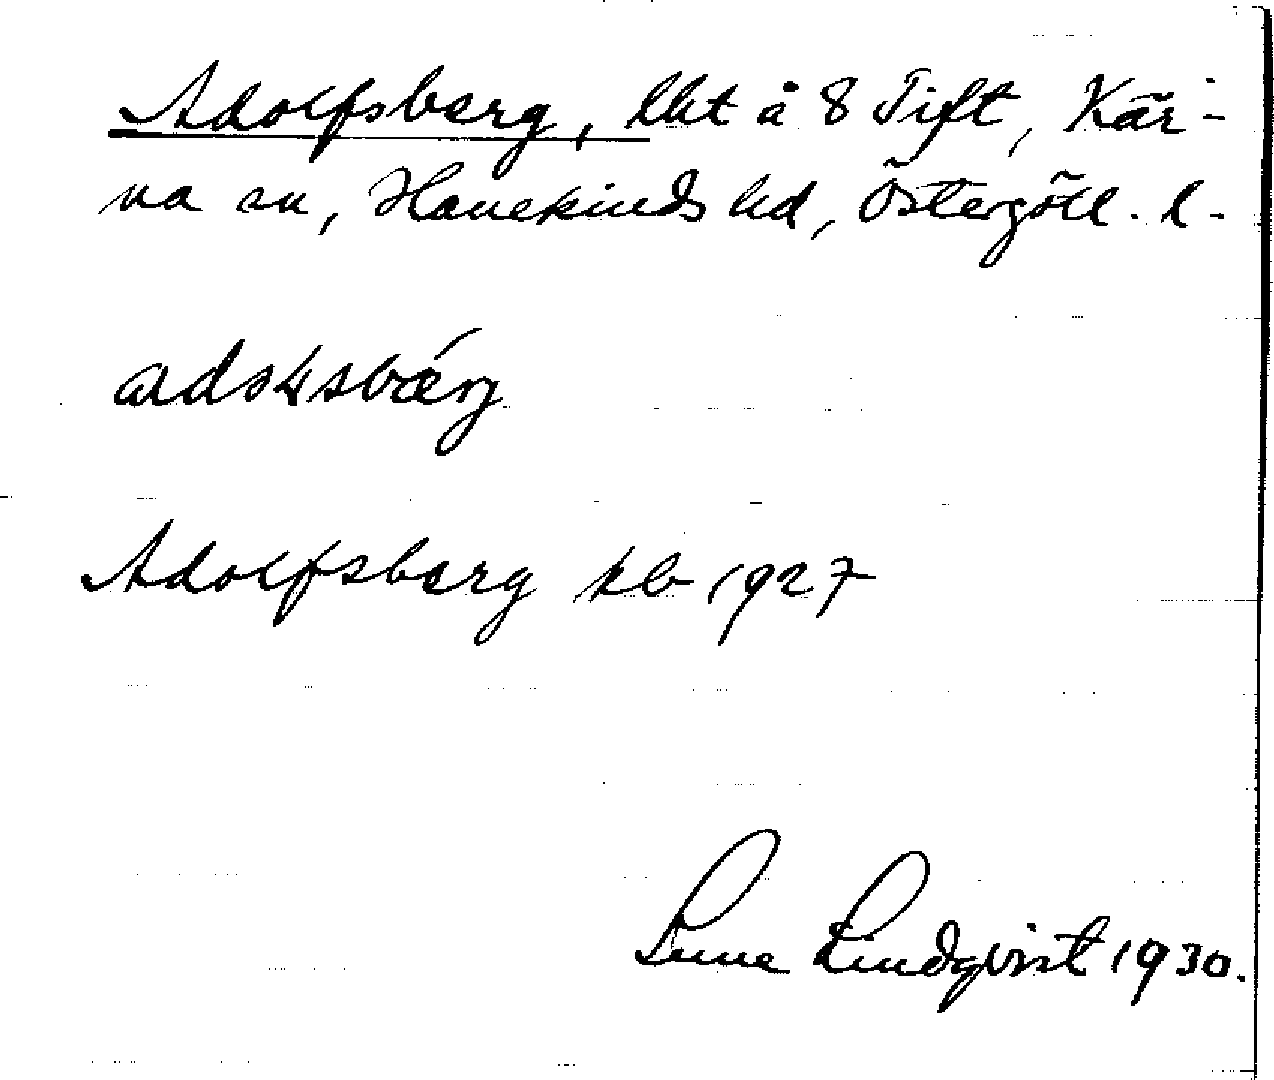 Adolfsberg, lht å 8 Tift, Kär-
na sn, Hanekinds hd, Östergötl. l.
Adolfsberg kb 1927
Sune Lindqvist 1930.